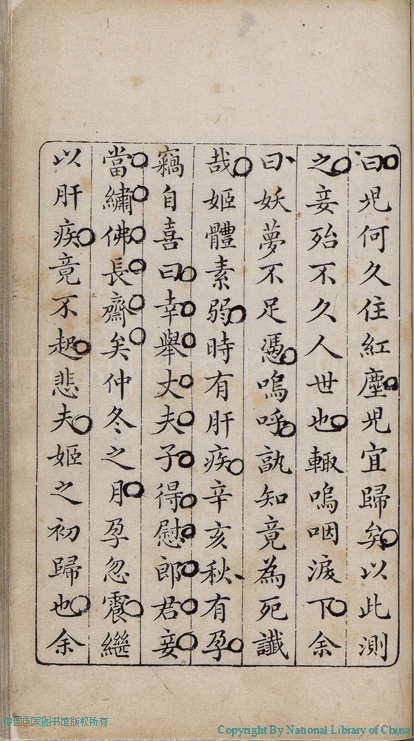 曰児何久住紅塵児宜歸矣以此測
之妾殆不久人世也輙嗚咽淚下余
曰妖夢不足憑嗚呼孰知竟為死讖
哉姬體素弱時有肝疾辛亥秋有孕
竊自喜曰幸舉丈夫子得慰郎君妾
當繡佛長齋矣仲冬之月孕忽震繼
以肝疾竟不起悲夫姬之初歸也余
中国国家图书馆版权所有
Copyright By National Library of China